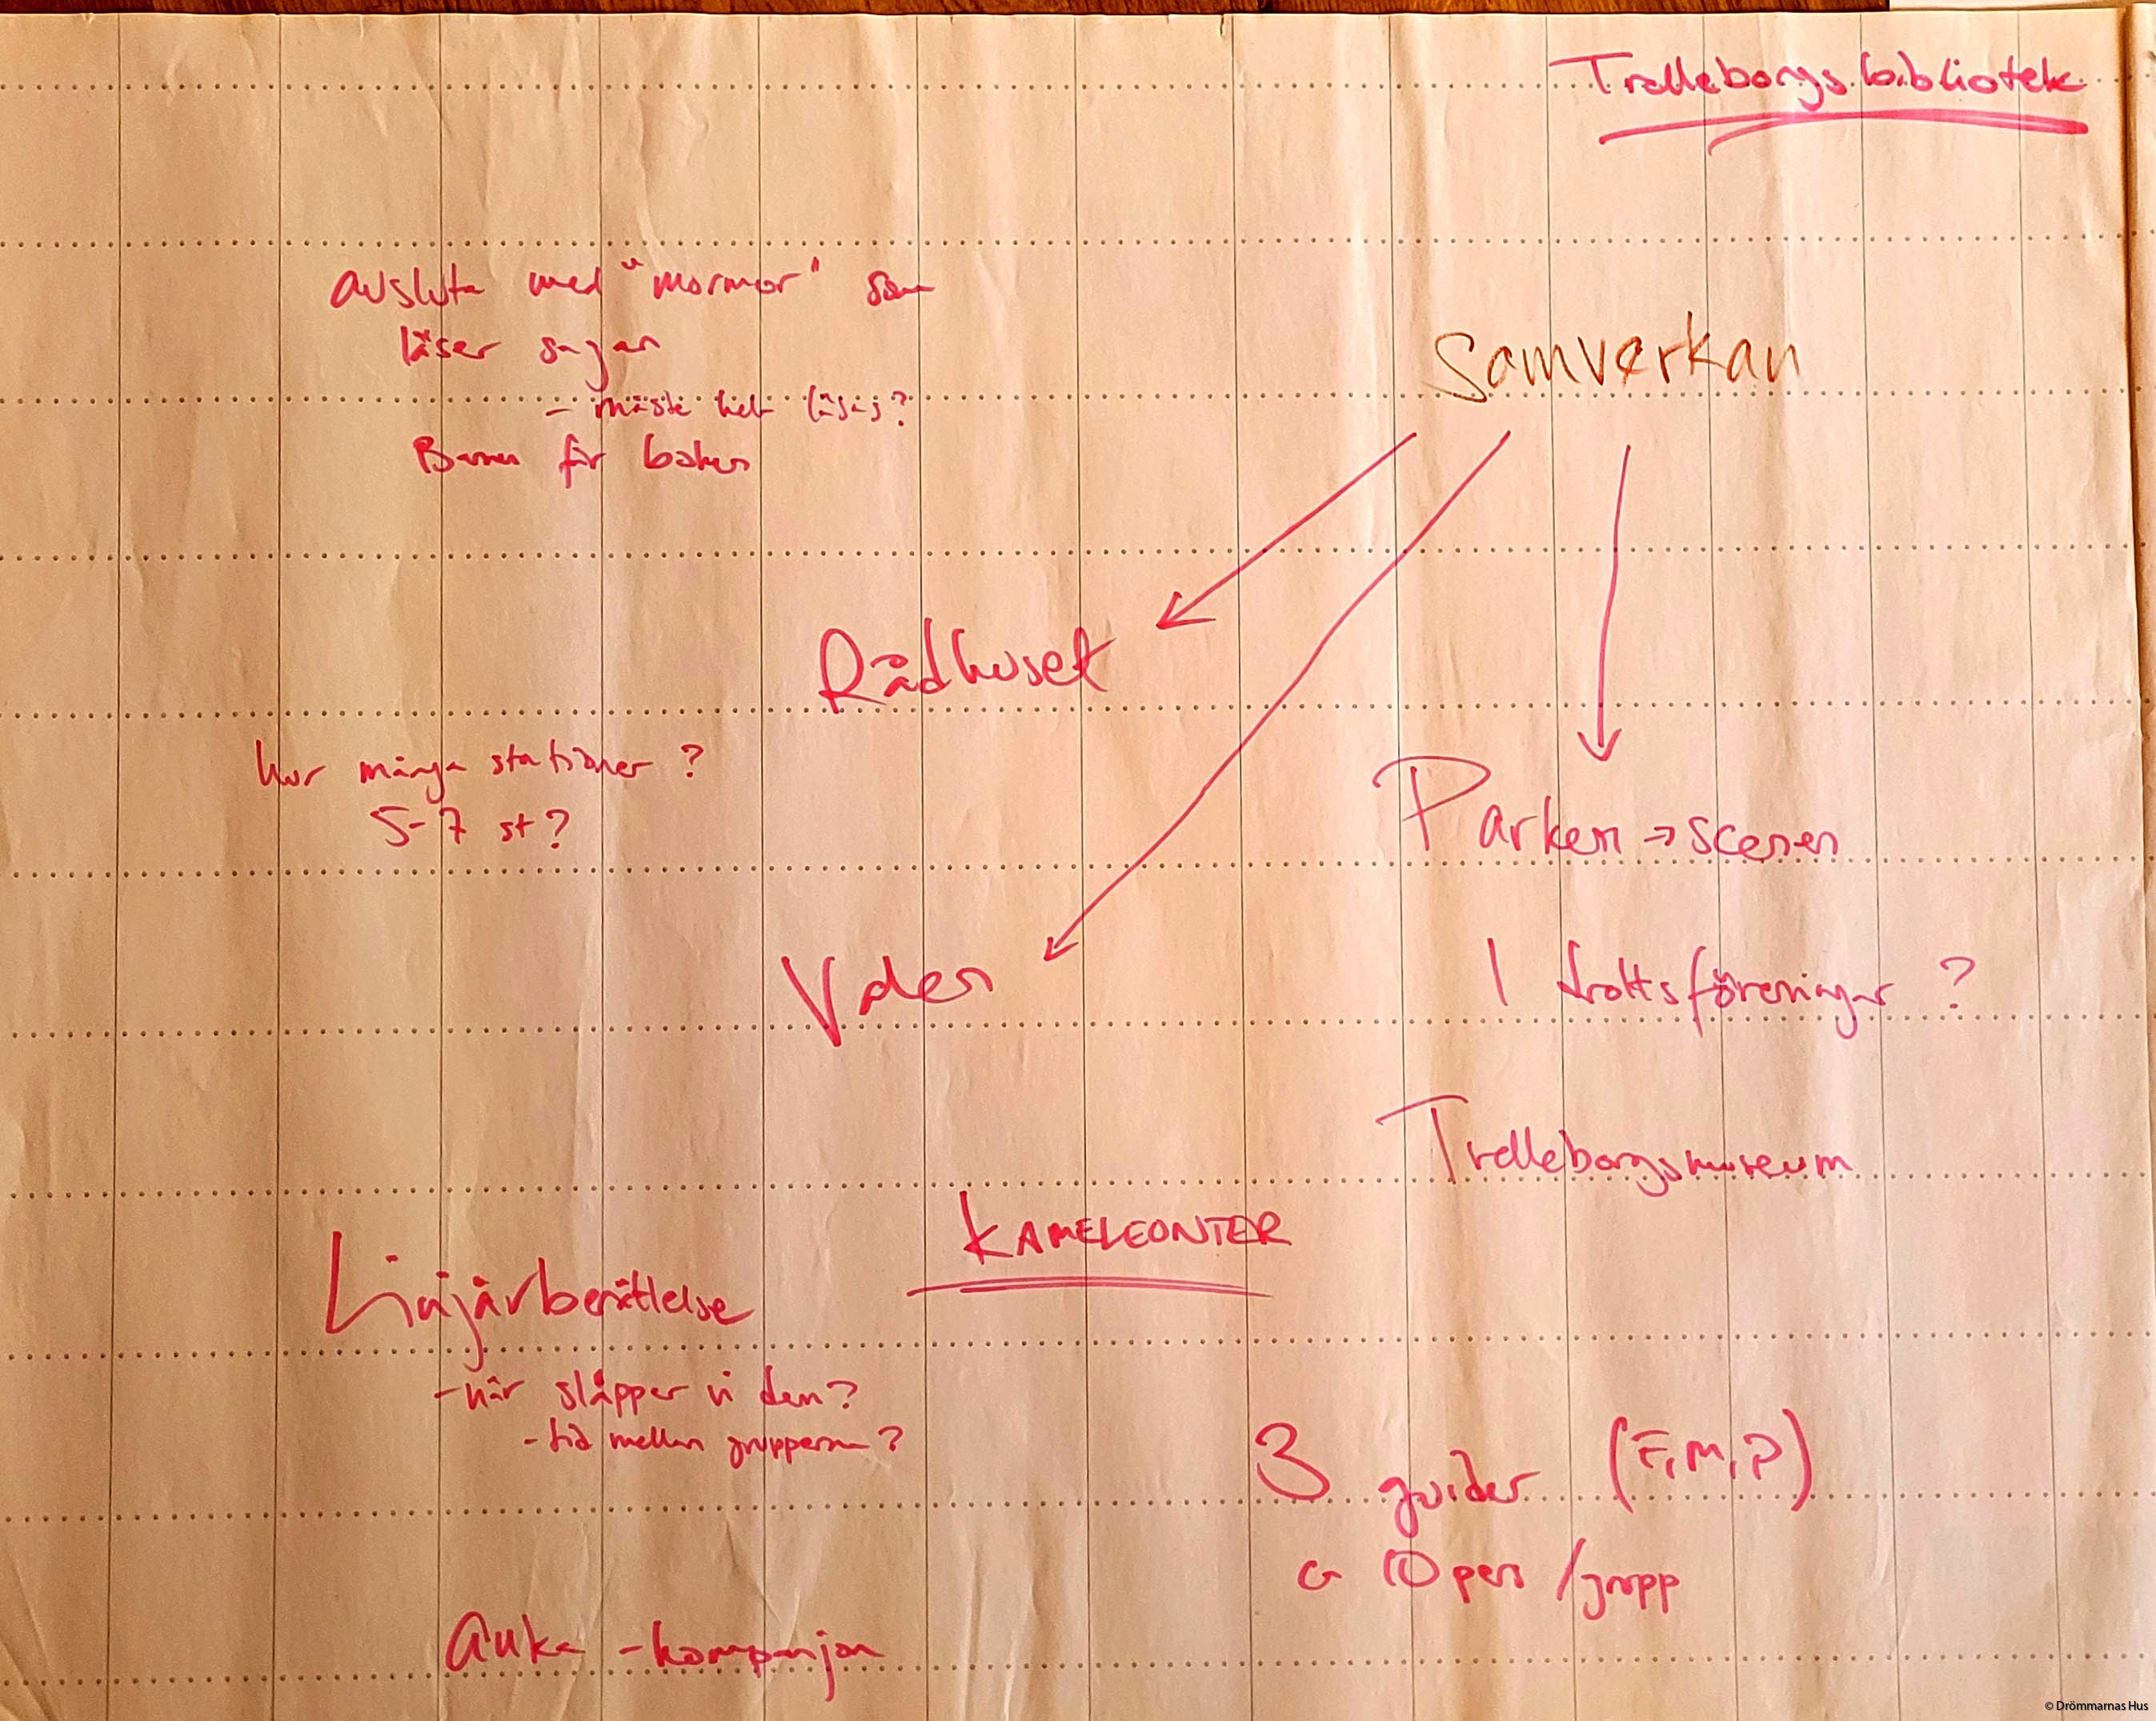 Trelleborgs bibliotek
avsluta med "mormor" som
läser sagan
- måste helt läsas?
Barnen får boken
Samverkan
Rådhuset
hur många stationer?
5-7 st?
Parken → scenen
Valen
Idrottsföreningar?
Trelleborgsmuseum
KAMELEONTER
Linjärberättelse
- när släpper vi den?
- tid mellan grupperna?
3 guider (F, M, P)
10 pers /grupp
- kompanjon
© Drömmarnas Hus